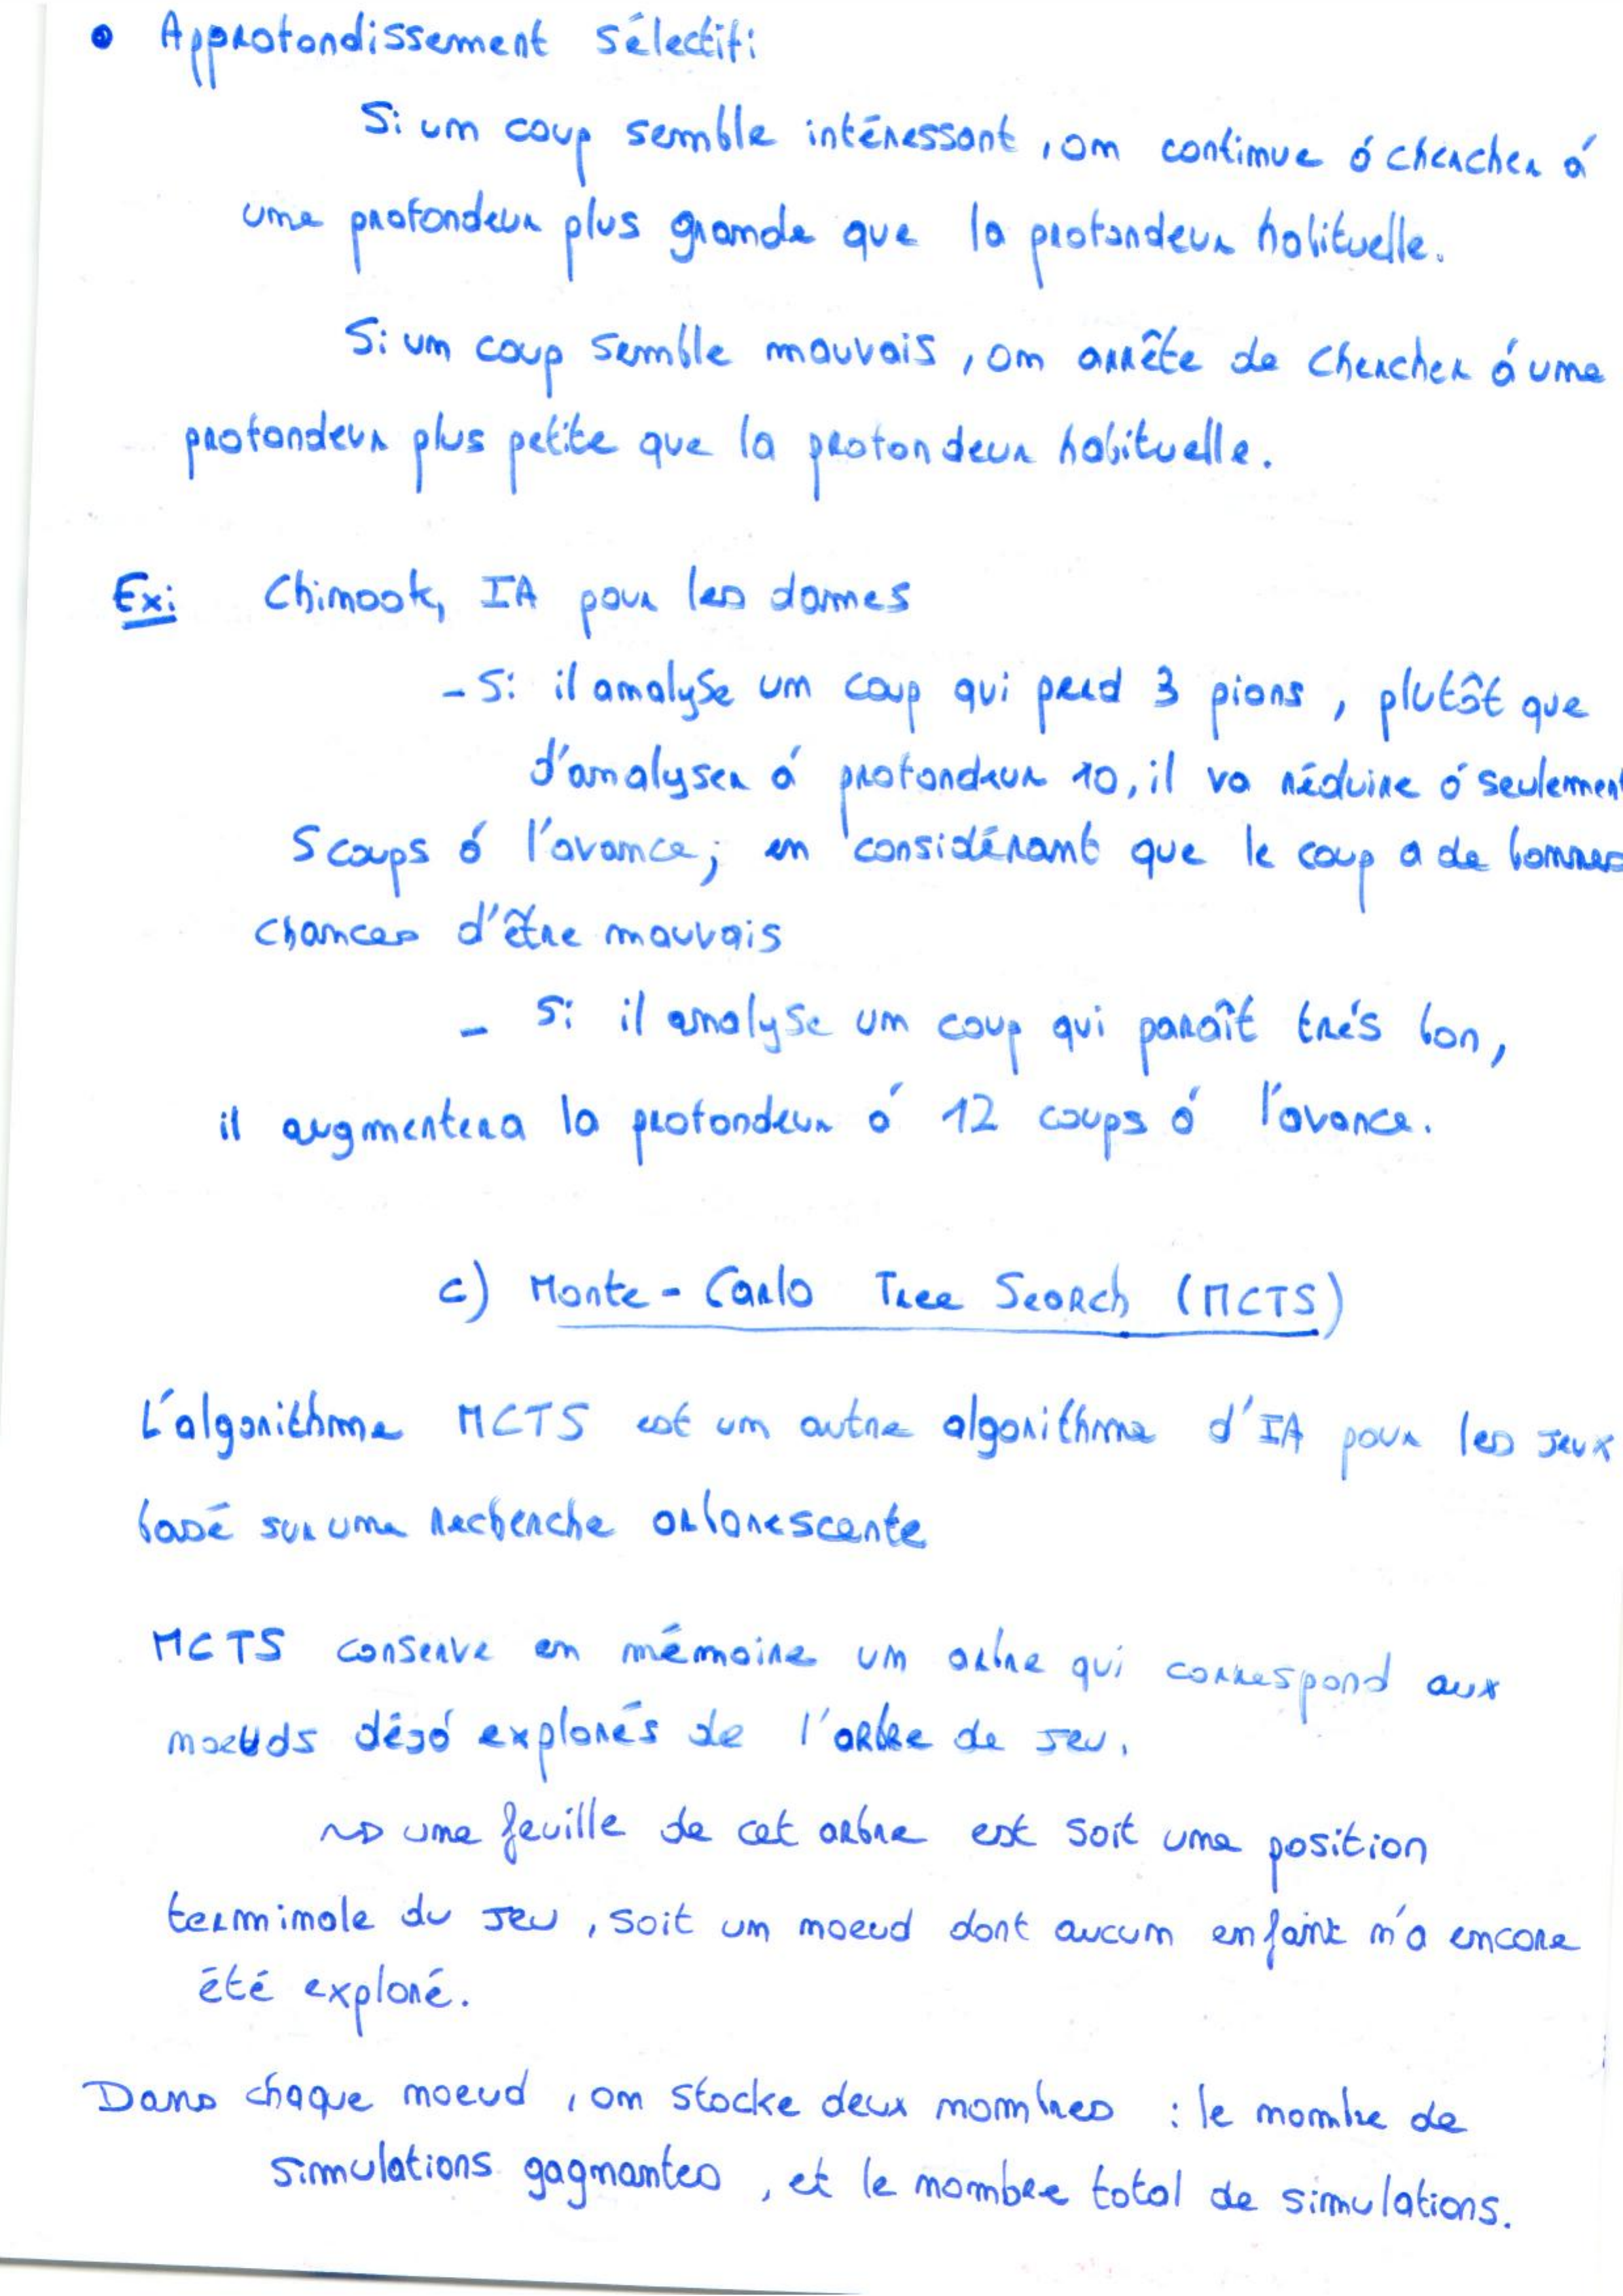 • Approfondissement sélectif:
Si un coup semble intéressant, on continue à chercher à
une profondeur plus grande que la profondeur habituelle.
Si un coup semble mauvais, on arrête de chercher à une
profondeur plus petite que la profondeur habituelle.
Ex: Chinook, IA pour les dames
- Si il analyse un coup qui perd 3 pions, plutôt que
d'analyser à profondeur 10, il va réduire à seulement
5 coups à l'avance; en considérant que le coup a de bonnes
chances d'être mauvais
- Si il analyse un coup qui paraît très bon,
il augmentera la profondeur à 12 coups à l'avance.
c) Monte-Carlo Tree Search (MCTS)
L'algorithme MCTS est un autre algorithme d'IA pour les jeux
basé sur une recherche arborescente
MCTS conserve en mémoire un arbre qui correspond aux
noeuds déjà explorés de l'arbre de jeu.
⇝ une feuille de cet arbre est soit une position
terminale du jeu, soit un noeud dont aucun enfant n'a encore
été exploré.
Dans chaque noeud, on stocke deux nombres : le nombre de
simulations gagnantes, et le nombre total de simulations.